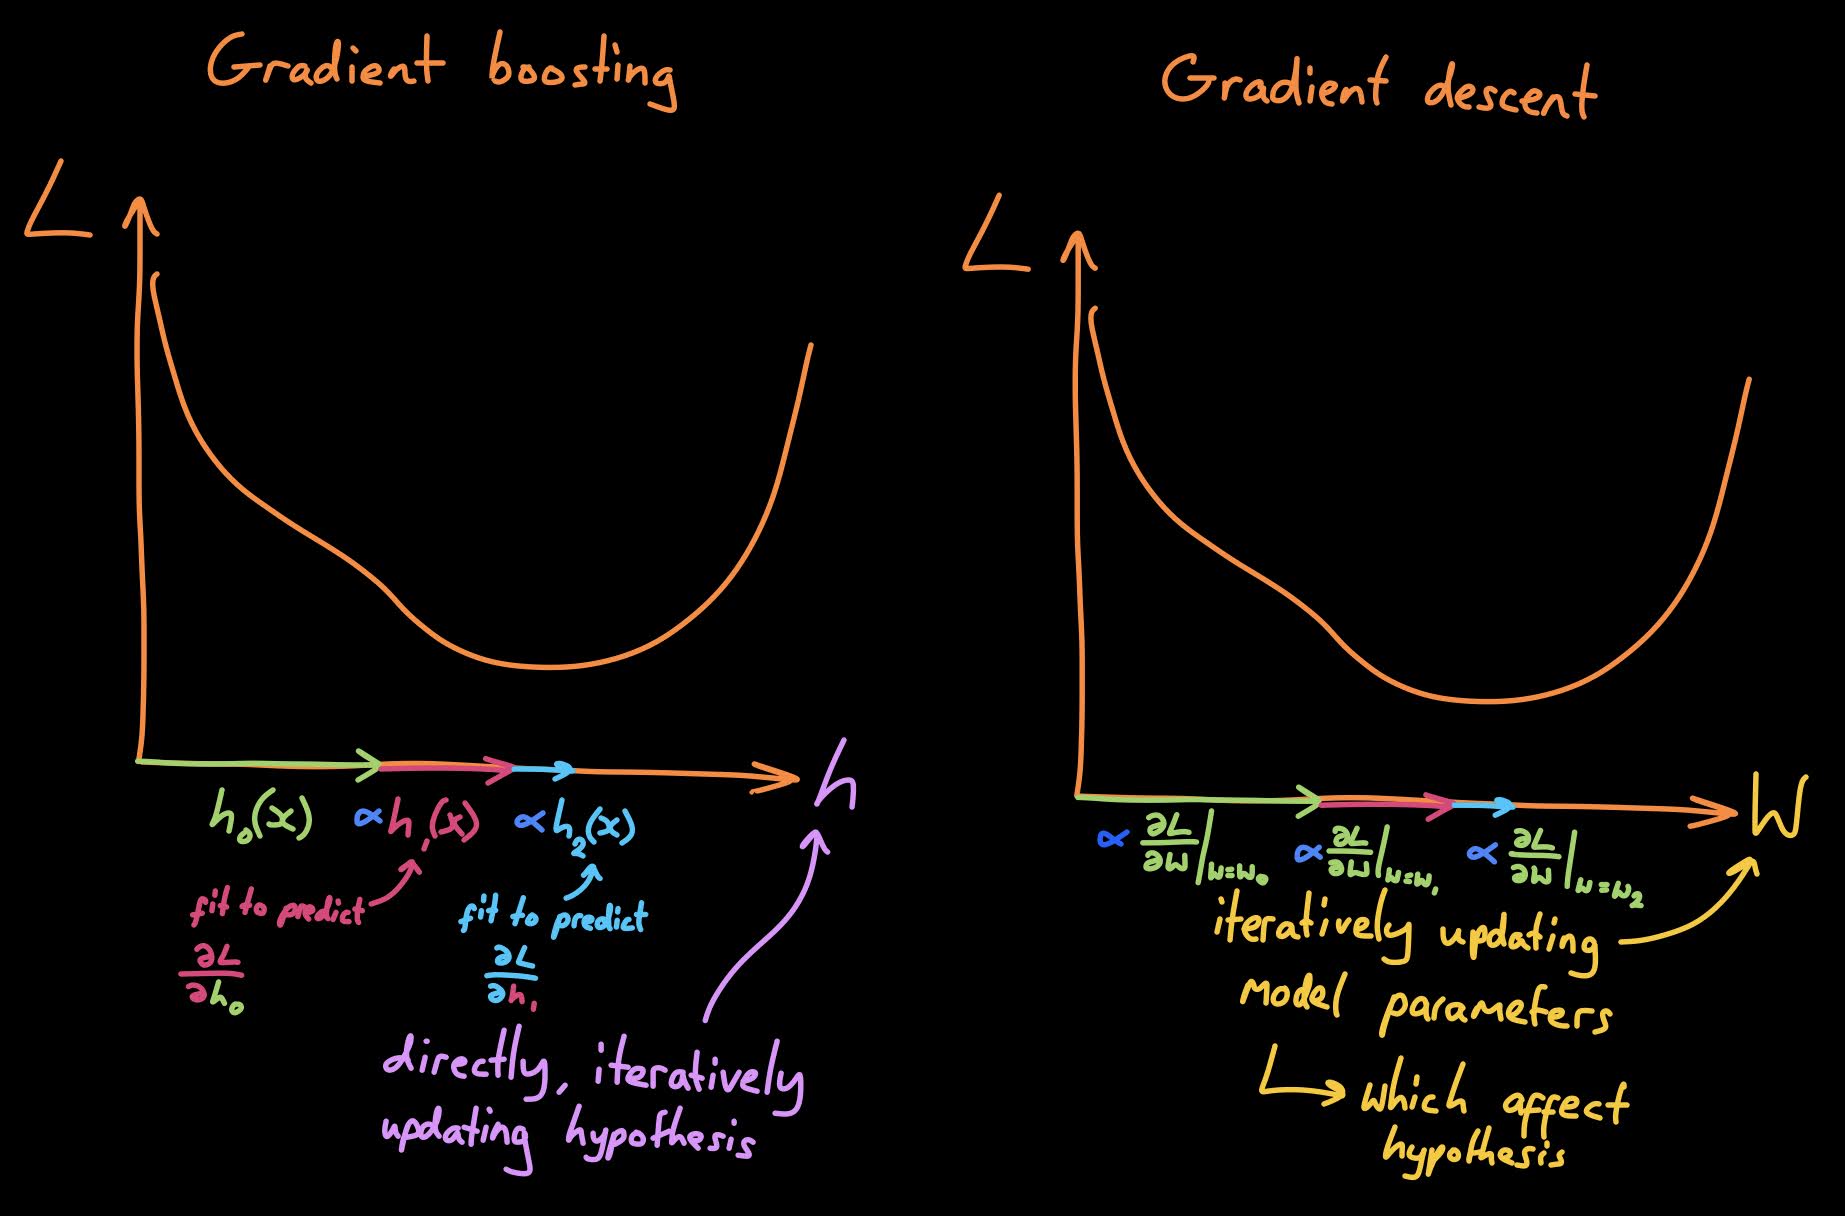 Gradient boosting
L
h
h₀(x)
αh₁(x)
αh₂(x)
fit to predict
∂L
∂h₀
fit to predict
∂L
∂h₁
directly, iteratively
updating hypothesis
Gradient descent
L
W
α ∂L/∂W|w=w₀
α ∂L/∂W|w=w₁
α ∂L/∂W|w=w₂
iteratively updating
model parameters
which affect
hypothesis